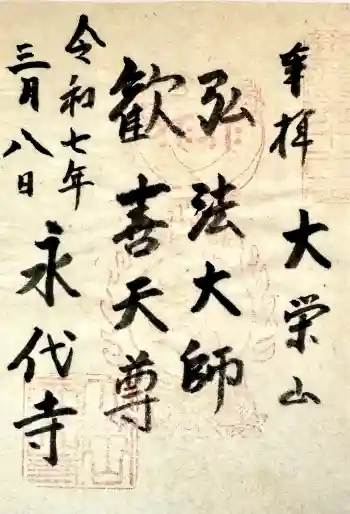 奉拝 大栄山
弘法大師
歓喜天尊
永代寺
令和七年
三月八日